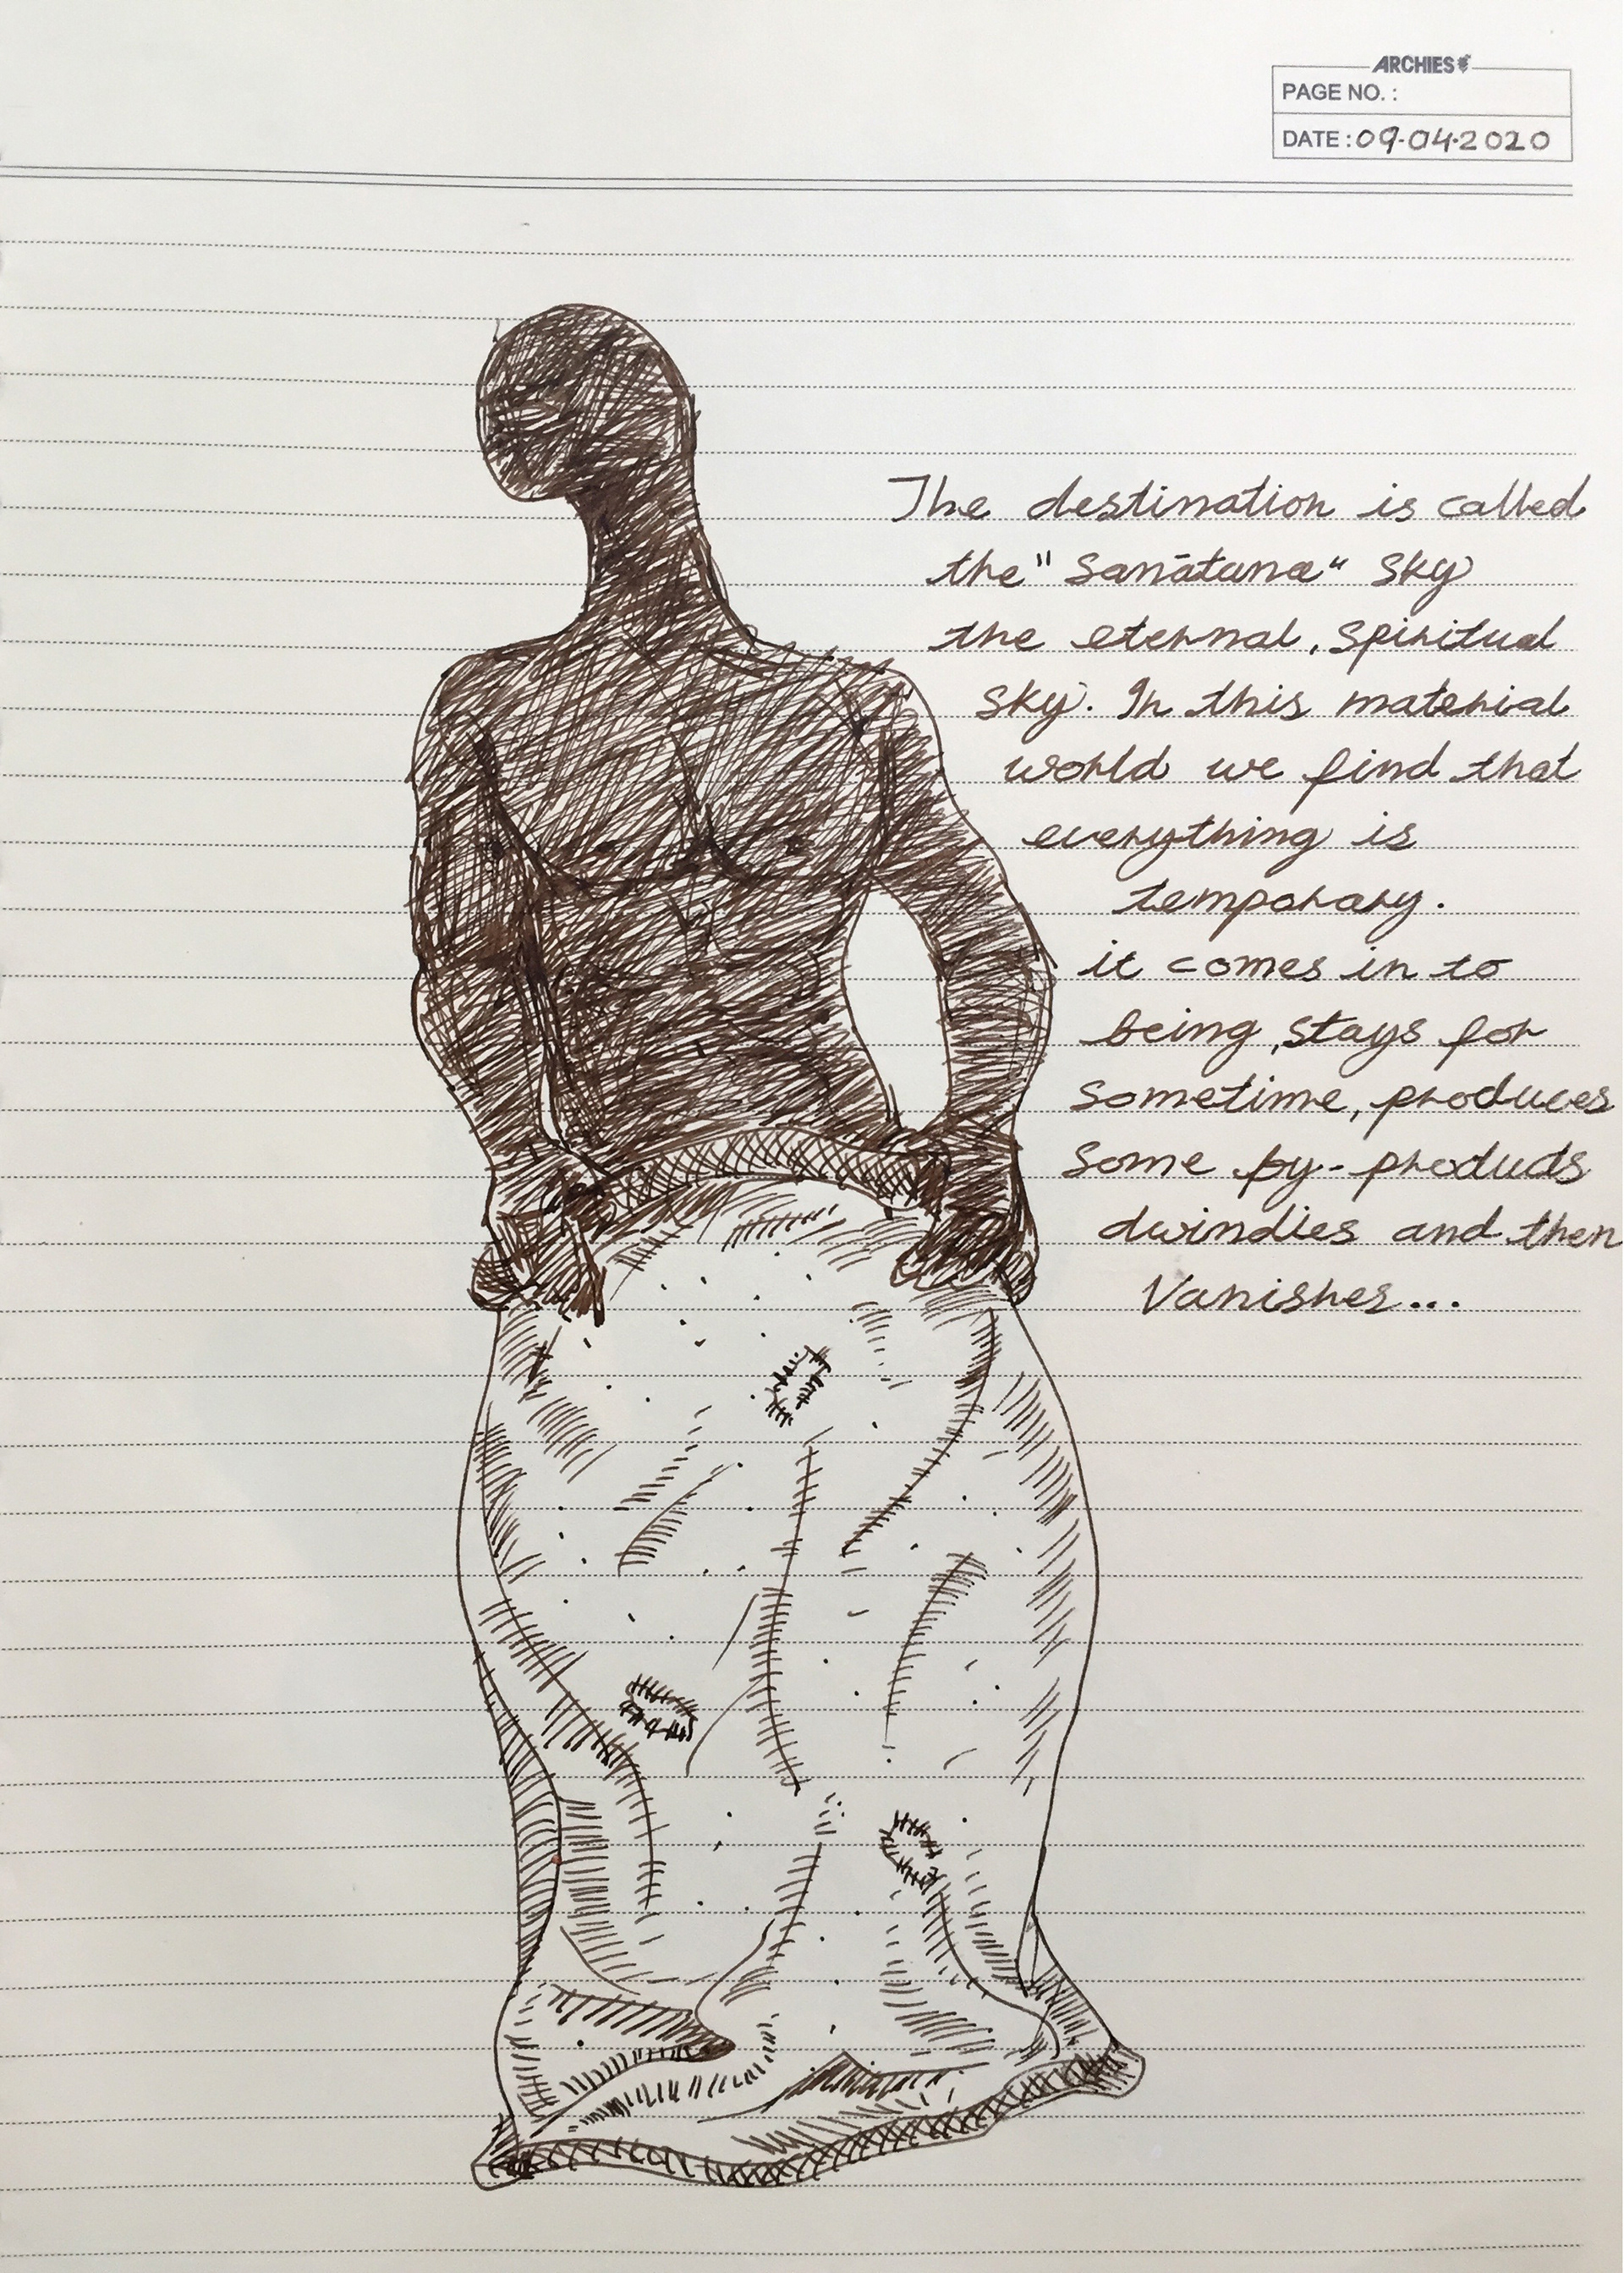 ARCHIES
PAGE NO. :
DATE : 09-04-2020
The destination is called
the "Sanātana" Sky
the eternal, spiritual
sky. In this material
world we find that
everything is
temporary.
it comes in to
being, stays for
sometime, produces
some by-products
dwindles and then
Vanishes...